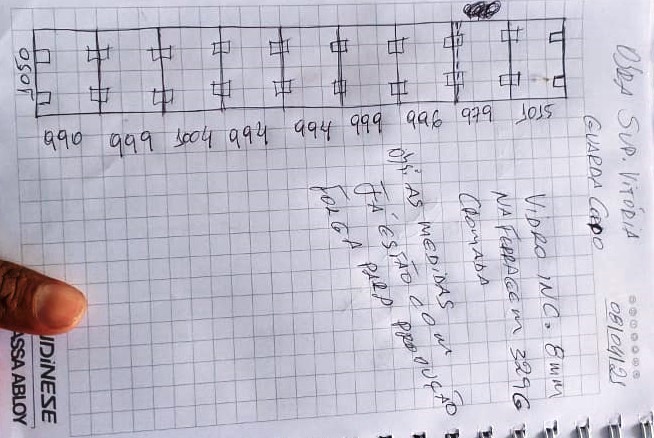 OBRA SUP. VITÓRIA
08/04/25
GUARDA CORPO
VIDRO INC. 8mm
NA FERRAGEM 3296
CROMADA
OBS: AS MEDIDAS
JÁ ESTÃO COM
FOLGA PARA PRODUÇÃO
1050
990 999 1004 994 994 999 996 979 1015
UDINESE
ASSA ABLOY